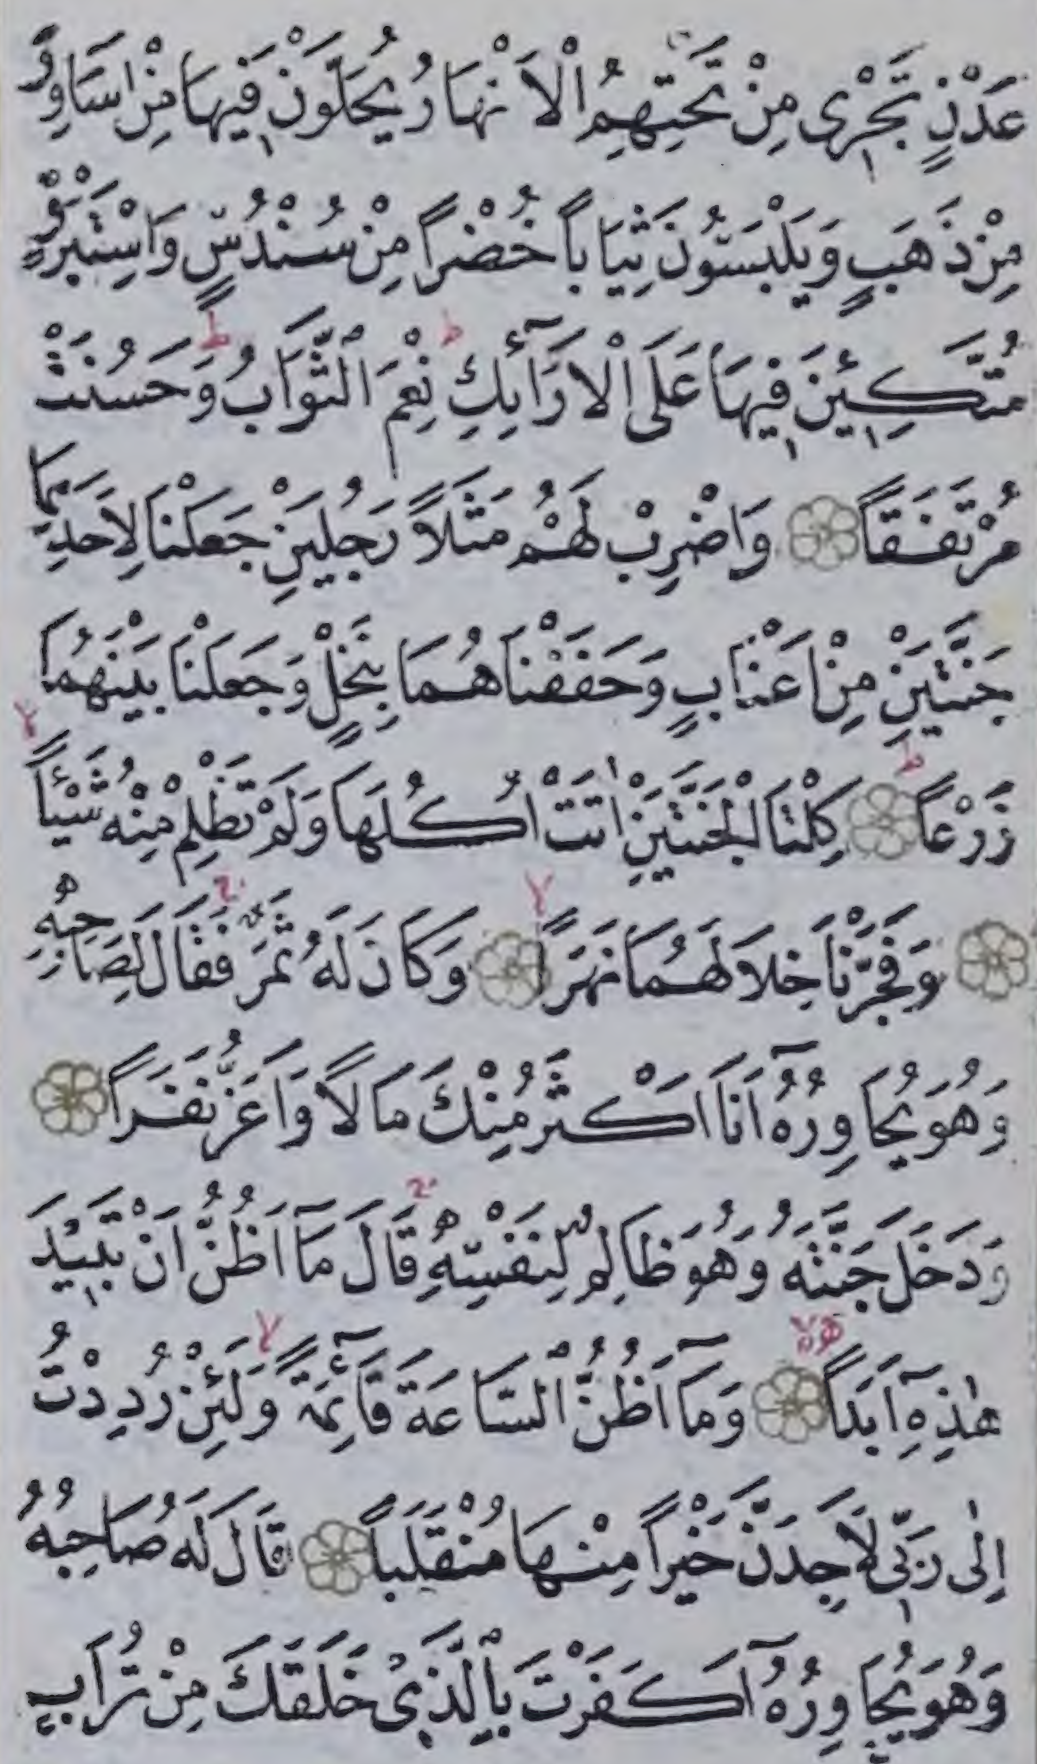 عَدْنٍ تَجْرٖى مِنْ تَحْتِهِمُ الْاَنْهَارُ يُحَلَّوْنَ فٖيهَا مِنْ اَسَاوِرَ
مِنْ ذَهَبٍ وَيَلْبَسُونَ ثِيَاباً خُضْراً مِنْ سُنْدُسٍ وَاِسْتَبْرَقٍ
مُتَّكِـٖٔينَ فٖيهَا عَلَى الْاَرَٓائِكِ ط نِعْمَ الثَّوَابُ ط وَحَسُنَتْ
مُرْتَفَقاً وَاضْرِبْ لَهُمْ مَثَلاً رَجُلَيْنِ جَعَلْنَا لِاَحَدِهِمَا
جَنَّتَيْنِ مِنْ اَعْنَابٍ وَحَفَفْنَاهُمَا بِنَخْلٍ وَجَعَلْنَا بَيْنَهُمَا
زَرْعاً ط كِلْتَا الْجَنَّتَيْنِ اٰتَتْ اُكُلَهَا وَلَمْ تَظْلِمْ مِنْهُ شَيْـٔاً لا
وَفَجَّرْنَا خِلَالَهُمَا نَهَراً لا وَكَانَ لَهُ ثَمَرٌ ج فَقَالَ لِصَاحِبِهٖ
وَهُوَ يُحَاوِرُهُٓ اَنَا اَكْثَرُ مِنْكَ مَالاً وَاَعَزُّ نَفَراً
وَدَخَلَ جَنَّتَهُ وَهُوَ ظَالِمٌ لِنَفْسِهٖ ج قَالَ مَٓا اَظُنُّ اَنْ تَبٖيدَ
هٰذِهٖٓ اَبَداً لا وَمَٓا اَظُنُّ السَّاعَةَ قَٓائِمَةً لا وَلَئِنْ رُدِدْتُ
اِلٰى رَبّٖى لَاَجِدَنَّ خَيْراً مِنْهَا مُنْقَلَباً قَالَ لَهُ صَاحِبُهُ
وَهُوَ يُحَاوِرُهُٓ اَكَفَرْتَ بِالَّذٖى خَلَقَكَ مِنْ تُرَابٍ